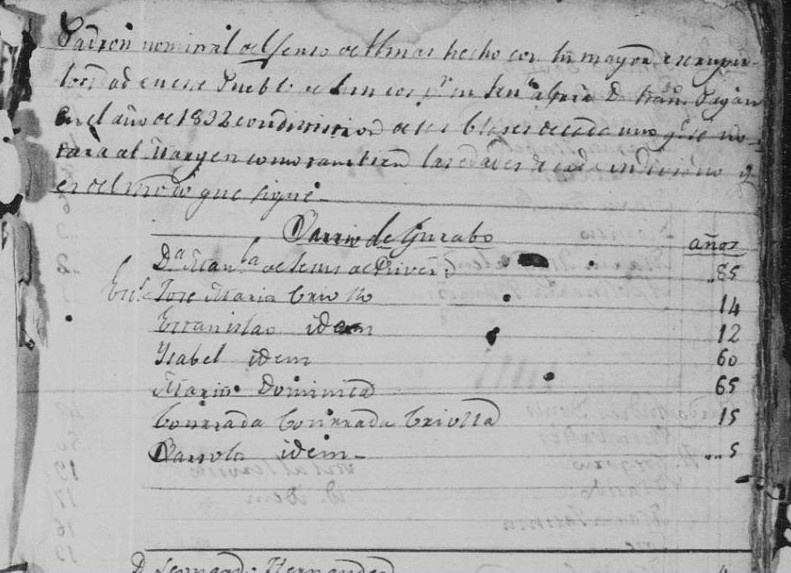 Padron nominal del Censo de Almas hecho con la mayor escrupulo-
en este Pueblo de Juncos pr. su Sen. D. Fran. Pagan
en el año de 1832 con dimision de las Clases de cada uno qe. se no-
tara al Margen como tambien las edades de cada individuo y
es del modo que sigue-
Barrio de Gurabo años
Da. Man.la de Jesus de Rivera ..85
Esc.s Jose Maria Criollo 14
Estanislao idem 12
Ysabel idem 60
Maria Dominica 65
Conrrada Conrrada Criolla 15
idem- ...5
D. Hernandez